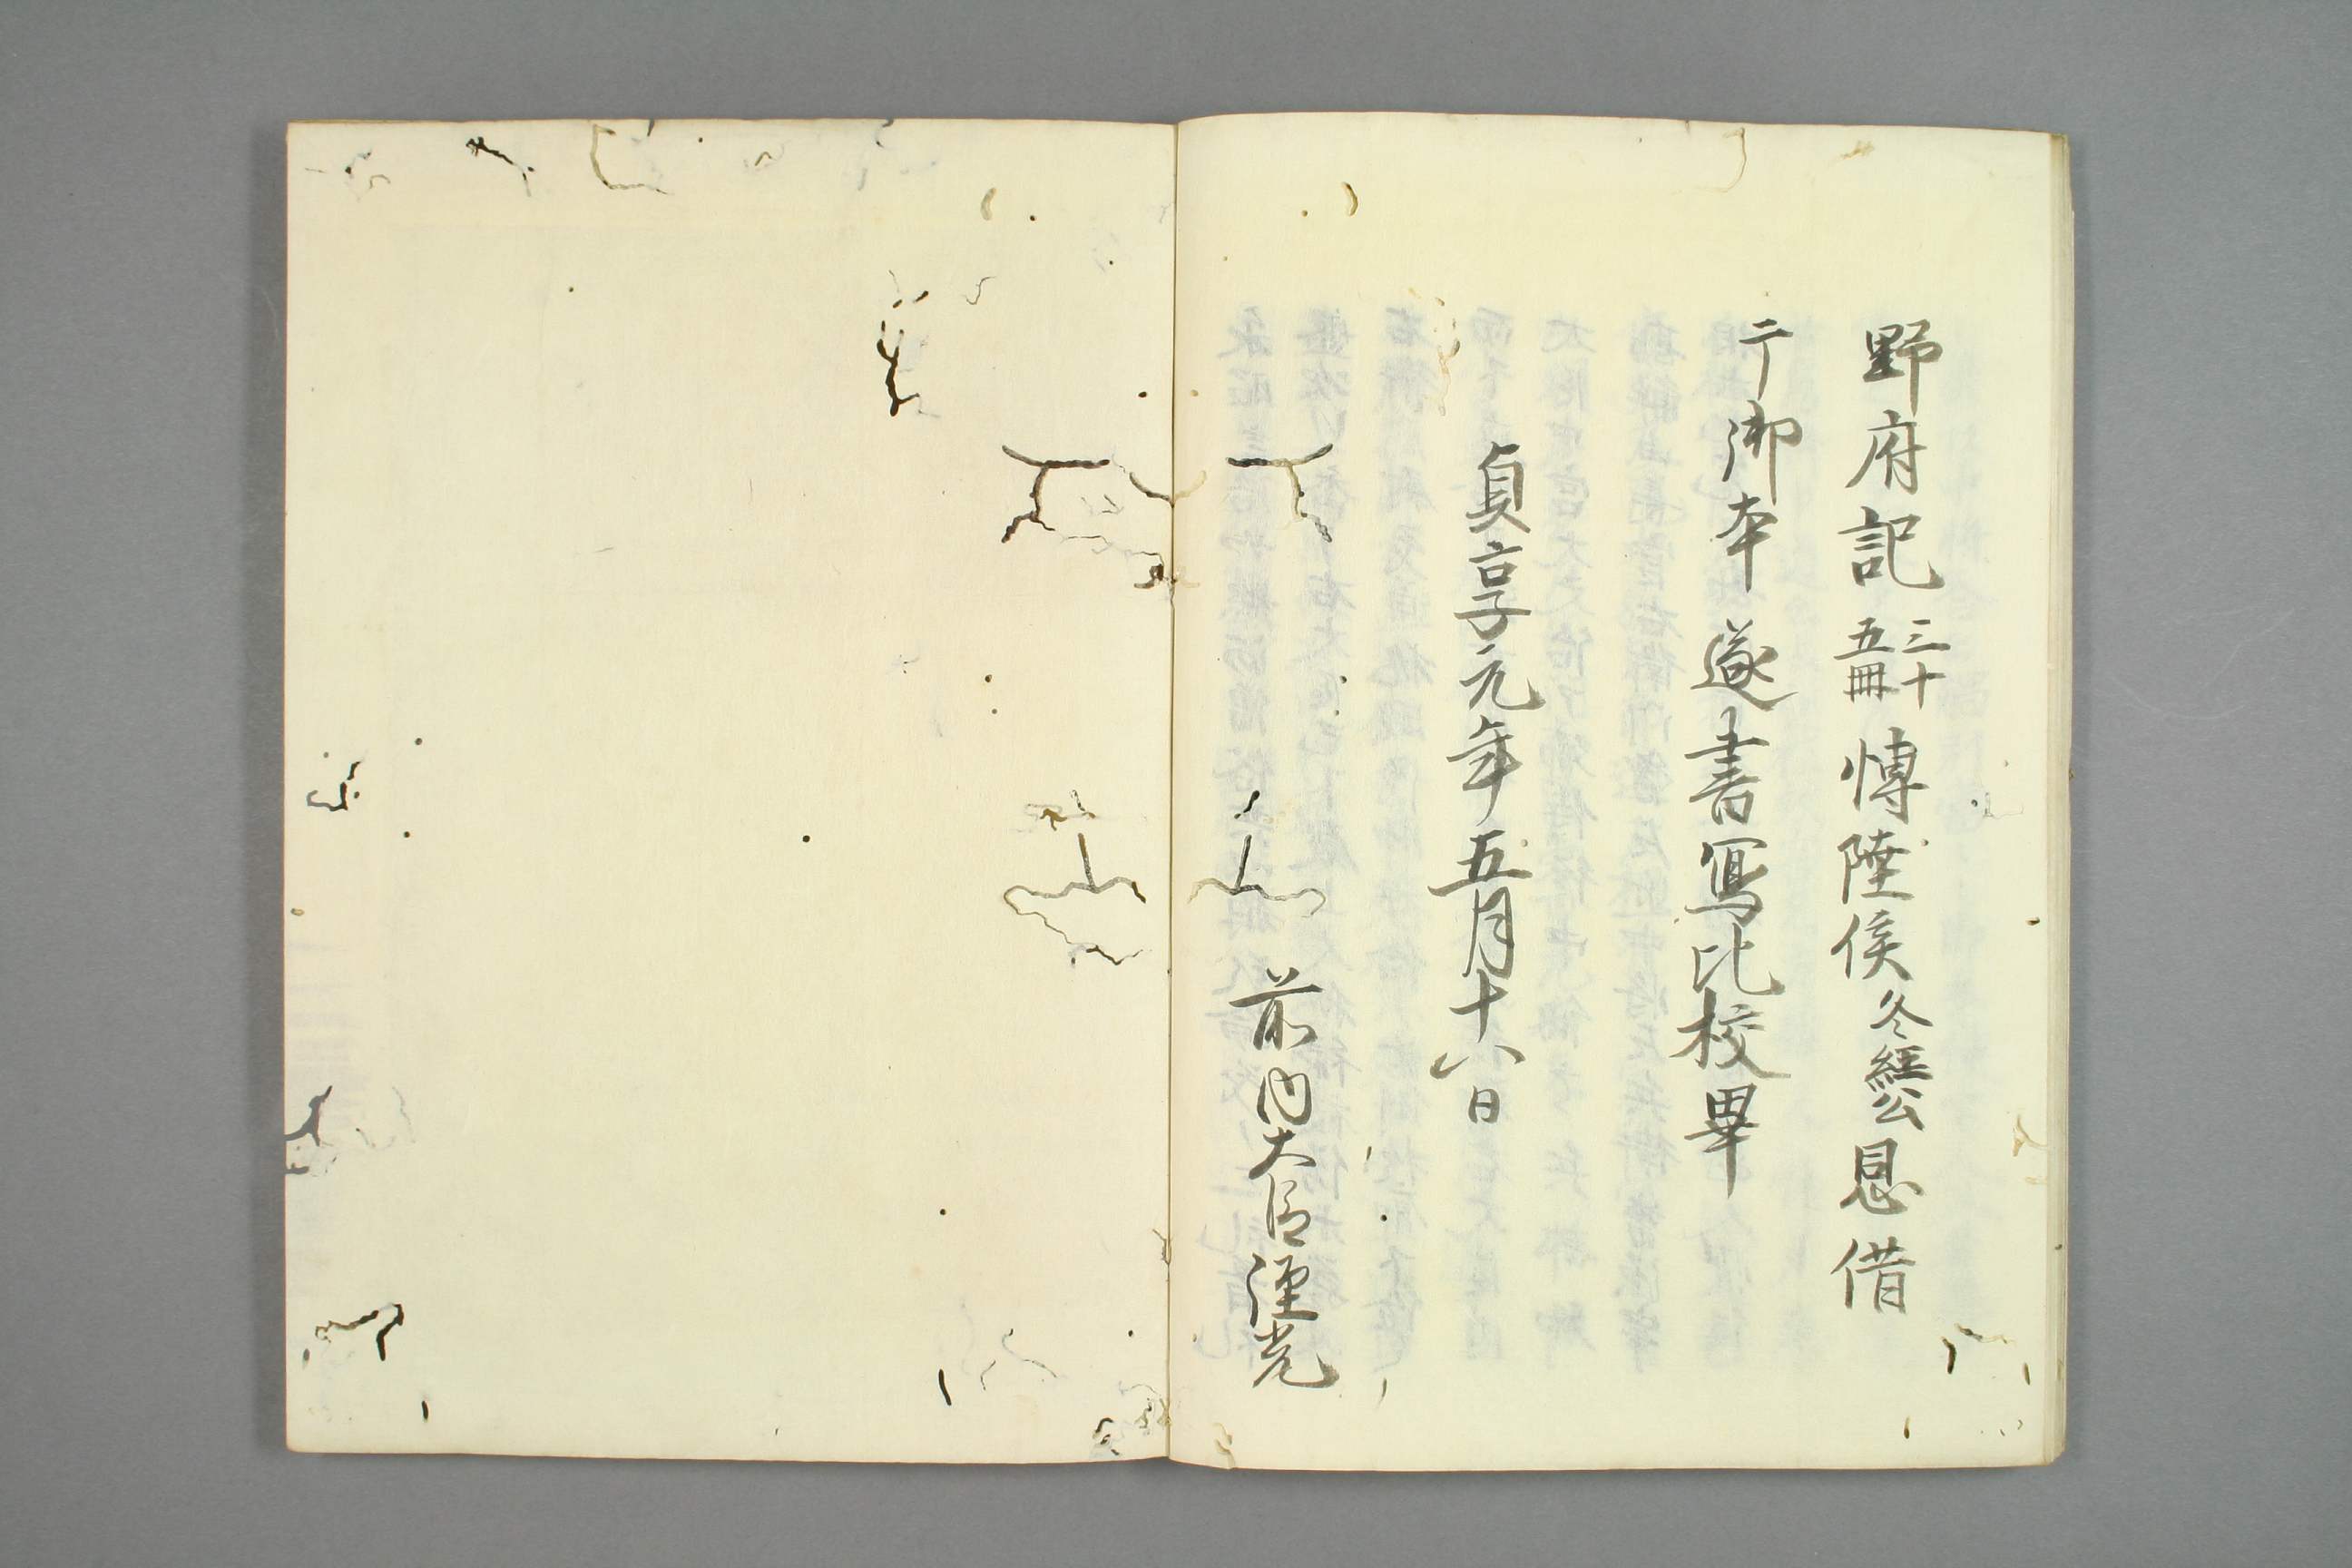 野府記三十五冊愽陸侯冬經公恩借
于御本遂書寫比校畢
貞享元年五月十八日
前内大臣經光